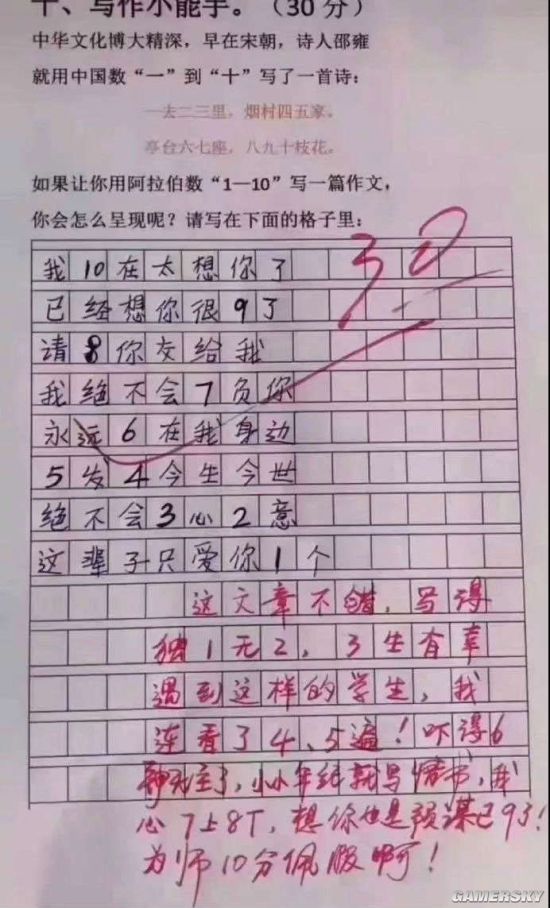 十、写作小能手。（30 分）
中华文化博大精深，早在宋朝，诗人邵雍
就用中国数“一”到“十”写了一首诗：
一去二三里，烟村四五家。
亭台六七座，八九十枝花。
如果让你用阿拉伯数“1—10”写一篇作文，
你会怎么呈现呢？请写在下面的格子里：
30
我10在太想你了
已经想你很9了
请8你交给我
我绝不会7负你
永远6在我身边
5发4今生今世
绝不会3心2意
这辈子只爱你1个
这文章不错，写得
独1无2，3生有幸
遇到这样的学生，我
连看了4、5遍！吓得6
神无主了，小小年纪就写情书，我
心7上8下，想你也是预谋已9了！
为师10分佩服啊！
GAMERSKY